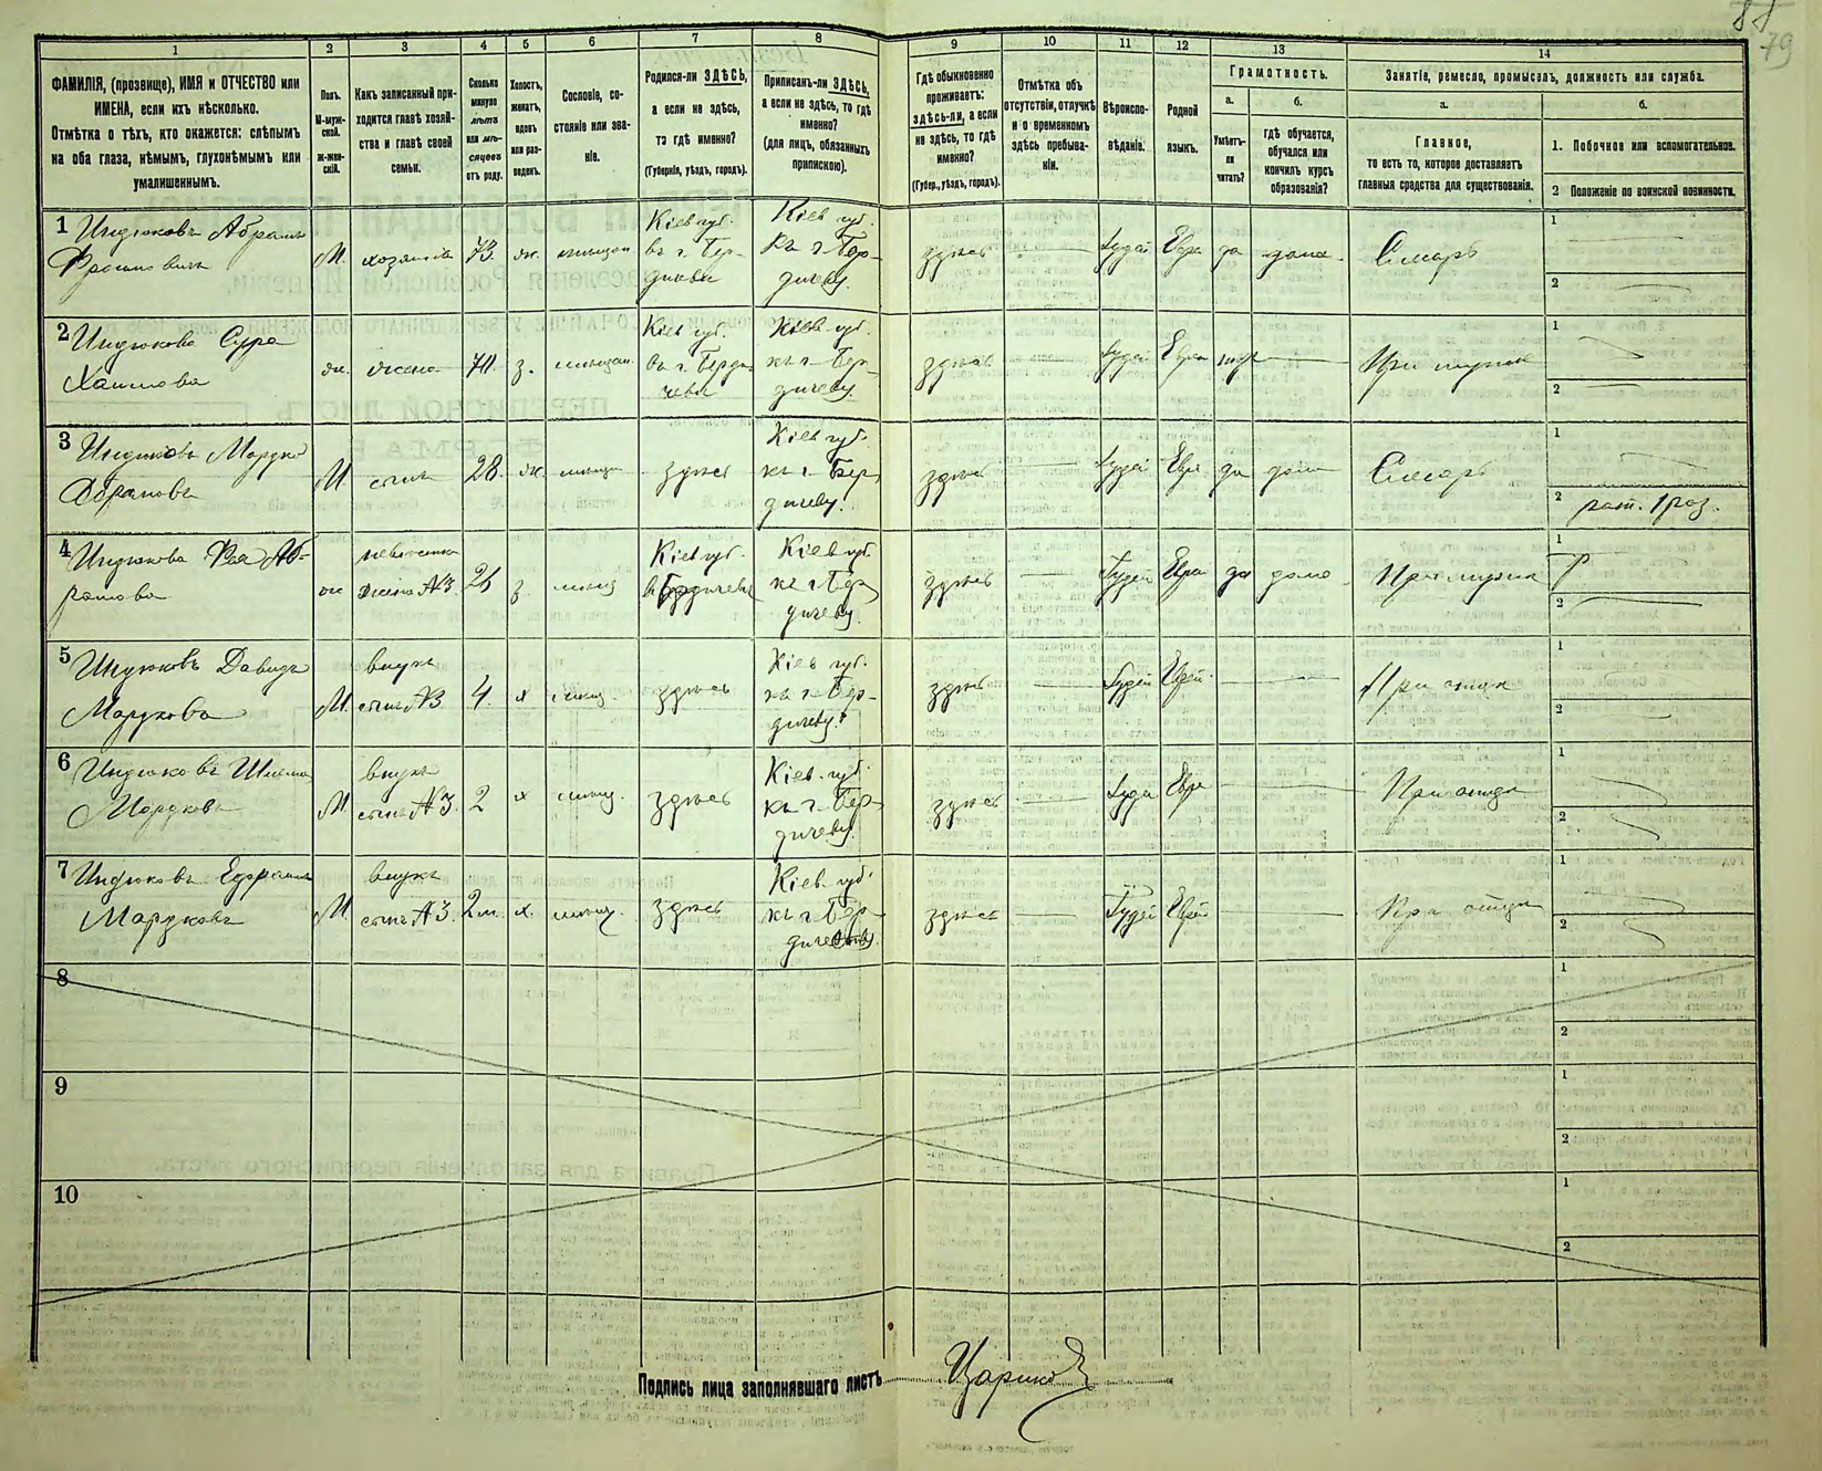 88
79
1
2
3
4
5
6
7
8
9
10
11
12
13
14
ФАМИЛІЯ, (прозвище), ИМЯ и ОТЧЕСТВО или
ИМЕНА, если ихъ нѣсколько.
Отмѣтка о тѣхъ, кто окажется: слѣпымъ
на оба глаза, нѣмымъ, глухонѣмымъ или
умалишеннымъ.
Полъ.
М-муж-
ской.
Ж-жен-
скій.
Какъ записанный при-
ходится главѣ хозяй-
ства и главѣ своей
семьи.
Сколько
минуло
лѣтъ
или мѣ-
сяцевъ
отъ роду.
Холостъ,
женатъ,
вдовъ
или раз-
веденъ.
Сословіе, со-
стояніе или зва-
ніе.
Родился-ли ЗДѢСЬ,
а если не здѣсь,
то гдѣ именно?
(Губернія, уѣздъ, городъ).
Приписанъ-ли ЗДѢСЬ,
а если не здѣсь, то гдѣ
именно?
(для лицъ, обязанныхъ
припискою).
Гдѣ обыкновенно
проживаетъ:
здѣсь-ли, а если
не здѣсь, то гдѣ
именно?
(Губер., уѣздъ, городъ).
Отмѣтка объ
отсутствіи, отлучкѣ
и о временномъ
здѣсь пребыва-
ніи.
Вѣроиспо-
вѣданіе.
Родной
языкъ.
Грамотность.
а.
Умѣетъ-
ли
читать?
б.
гдѣ обучается,
обучался или
кончилъ курсъ
образованія?
Занятіе, ремесло, промыселъ, должность или служба.
а.
Главное,
то есть то, которое доставляетъ
главныя средства для существованія.
б.
1. Побочное или вспомогательное.
2 Положеніе по воинской повинности.
1 Индюковъ Абрамъ
М. хозяинъ 73. ж. мѣщан.
Кіев губ.
въ г. Бер-
дичевѣ
Кіев губ.
къ г. Бер-
дичеву.
здѣсь Іудей Евре да дома Слесарь
1
2
2 Индюкова Сура
Хаимова
ж. жена 70. з. мѣщан.
Кіев губ.
въ г. Берди-
чевѣ
Кіев губ.
къ г. Бер-
дичеву.
здѣсь Іудей Евре При мужѣ
1
2
3 Индюковъ Мордко
Абрамовъ
М сынъ 28. ж. мѣщан здѣсь
Кіев губ.
къ г. Бер-
дичеву.
здѣсь Іудей Евре да дома Слесарь
1
2 рат. 1 раз.
4 Индюкова
ж невѣстка
жена №3. з. мѣщ
Кіев губ.
въ Бердичевѣ
Кіев губ.
къ г. Бер
дичеву.
здѣсь Іудей Евре да дома При мужѣ
1
2
5 Индюковъ Давидъ
Мордкова
М. внукъ
сынъ №3 4. х мѣщ. здѣсь
Кіев губ.
къ г. Бер-
дичеву.
здѣсь Іудей Еврей При отцѣ
1
2
6 Индюковъ Шлема
Мордковъ
М. внукъ
сынъ №3. 2 х мѣщ. здѣсь
Кіев. губ.
къ г. Бер-
дичеву.
здѣсь Іуде Евре При отцѣ
1
2
7 Индюковъ Ефраимъ
Мордковъ
М. внукъ
сынъ №3. 2 м. х. мѣщ. здѣсь
Кіев. губ.
къ г. Бер-
здѣсь Іудей Еврей При отцѣ
1
2
8
1
2
9
1
2
10
1
2
Подпись лица заполнявшаго листъ